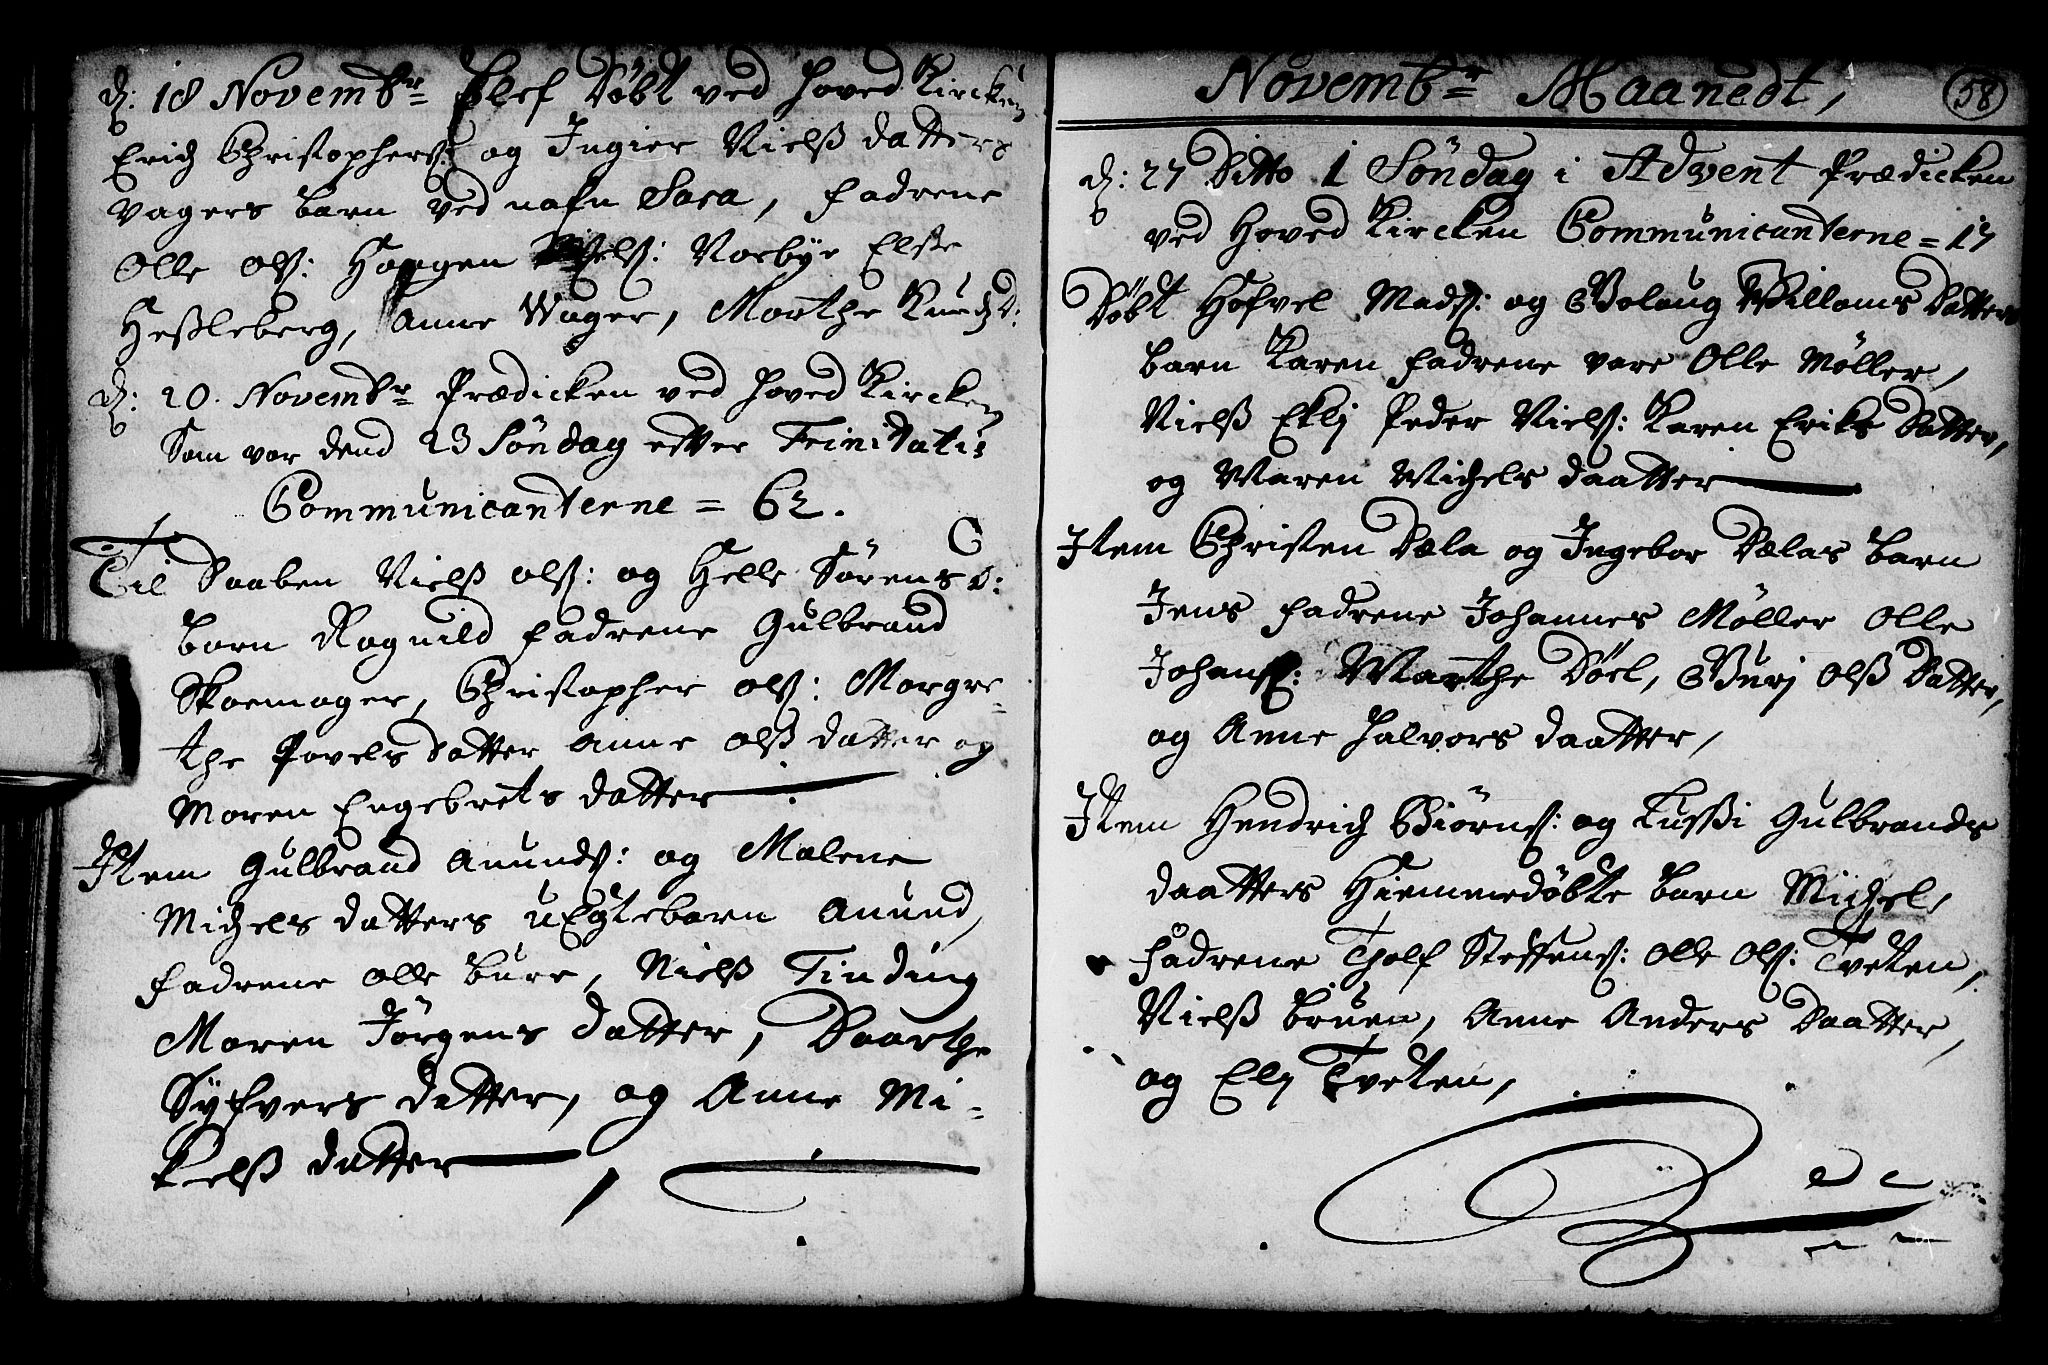 d: 18 Novembr Blef Döbt ved hoved Kircken
Erich Christophers: og Ingier Nielß datters
Vagers barn ved nafn Sara, fadrene
Olle Ols: Haagen Niels: Norbye Else
Heßleberg, Anne Wager, Marthe Knudsd:
d: 20. Novembr Prædicken ved hoved Kircken
Som var dend 23 Söndag efter Trinitatis
Communicanterne = 62.
Til Daaben Nielß Ols: og Helle Sörens d:
barn Ragnild fadrene Gulbrand
Skoemager, Christopher Ols: Margre-
the Povels datter Anne Olß datter og
Maren Engebrets datter
Item Gulbrand Anunds: og Malene
Michels datters uEgtebarn Anund,
fadrene Olle Bure, Nielß Tinding
Maren Jörgens datter, Daarthe
Syfvers datter, og Anne Mi-
kelß datter
Novembr Maanedt, 58
d: 27 Ditto 1 Söndag i Advent Prædicken
ved Hoved Kircken Communicanterne = 17
Döbt Hofvel Mads: og Golaug Willams Datters
barn Karen fadrene vare Olle Möller,
Nielß Eklj Peder Niels: Karen Eriks Datter,
og Maren Michels daatter
Item Christen Dæla og Ingebor Dælas barn
Jens fadrene Johannes Möller Olle
Johans: Marthe Döel, Gurj Olß Datter,
og Anne Halvors daatter,
Item Hendrich Biörns: og Lußi Gulbrands
daatters Hiemmedöbte barn Michel,
fadrene Tholf Steffens: Olle Ols: Tveten,
Nielß Bruen, Anne Anders Daatter,
og Elj Tveten,